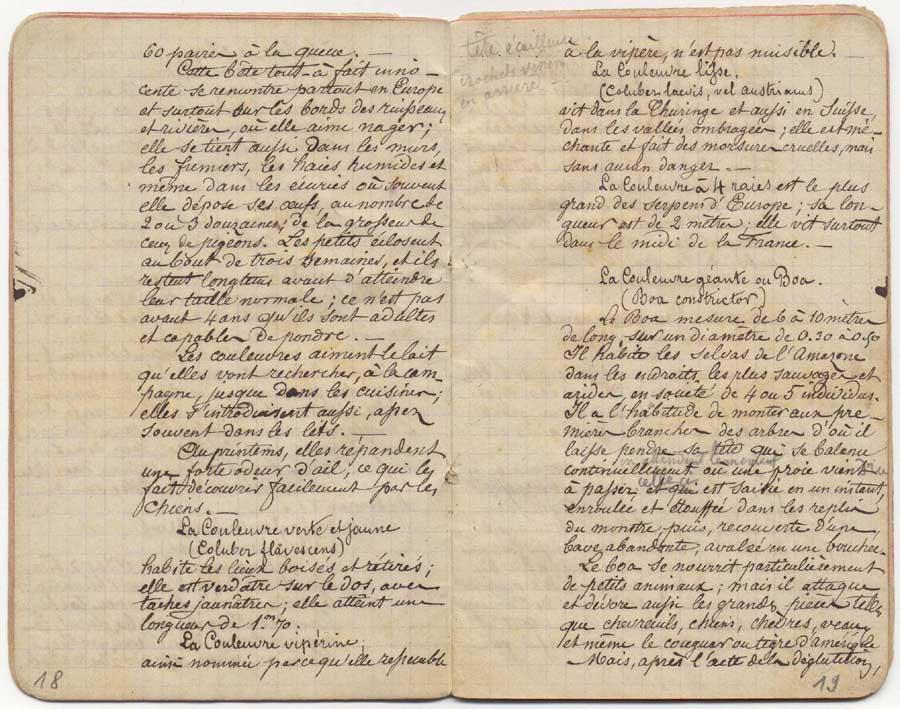 60 paires à la queue. —
Cette bête tout-à fait inno-
cente se rencontre partout en Europe
et surtout sur les bords des ruisseaux
et rivière, où elle aime nager;
elle se tient aussi dans les murs,
les fumiers, les haies humides et
même dans les écuries où souvent
elle dépose ses œufs, au nombre de
2 ou 3 douzaines, de la grosseur de
ceux de pigeons. Les petits éclosent
au bout de trois semaines, et ils
restent longtems avant d'atteindre
leur taille normale; ce n'est pas
avant 4 ans qu'ils sont adultes
et capables de pondre. —
Les couleuvres aiment le lait
qu'elles vont rechercher, à la cam-
pagne, jusque dans les cuisines;
elles s'introduisent aussi, assez
souvent dans les lits. —
Au printems, elles répandent
une forte odeur d'ail, ce qui les
fait découvrir facilement par les
chiens. —
La Couleuvre verte et jaune
(Coluber flavescens)
habite les lieux boisés et rétirés;
elle est verdâtre sur le dos, avec
taches jaunâtres; elle atteint une
longueur de 1.m70.
La Couleuvre vipérine,
ainsi nommée parce qu'elle ressemble
18
tête écailleuse
crochets venin
en arrière
à la vipère, n'est pas nuisible.
La Couleuvre lisse,
(Coluber laevis, vel austriacus)
vit dans la Thuringe et aussi en Suisse,
dans les vallées ombragées; elle est mé-
chante et fait des morsures cruelles, mais
sans aucun danger. —
La Couleuvre à 4 raies est le plus
grand des serpens d'Europe; sa lon-
gueur est de 2 mètres; elle vit surtout
dans le midi de la France. —
La Couleuvre géante ou Boa.
(Boa constrictor)
Le Boa mesure de 6 à 10 mètres
de long, sur un diamètre de 0.30 à 0.50
Il habite les selvas de l'Amazone
dans les endroits les plus sauvages et
arides, en société de 4 ou 5 individus.
Il a l'habitude de monter aux pre-
mières branches des arbres d'où il
laisse pendre sa tête qui se balence
continuellement en attendant le moment où une proie vienne
à passer celle-ci est saisie en un instant,
enroulée et étouffée dans les replis
du monstre puis, recouverte d'une
bave abondante, avalée en une bouchée.
Le boa se nourrit particulièrement
de petits animaux; mais il attaque
et dévore aussi les grandes pièces telles
que chevreuils, chiens, chèvres, veaux,
et même le couguar ou tigre d'amérique
Mais, après l'acte de la déglutition,
19